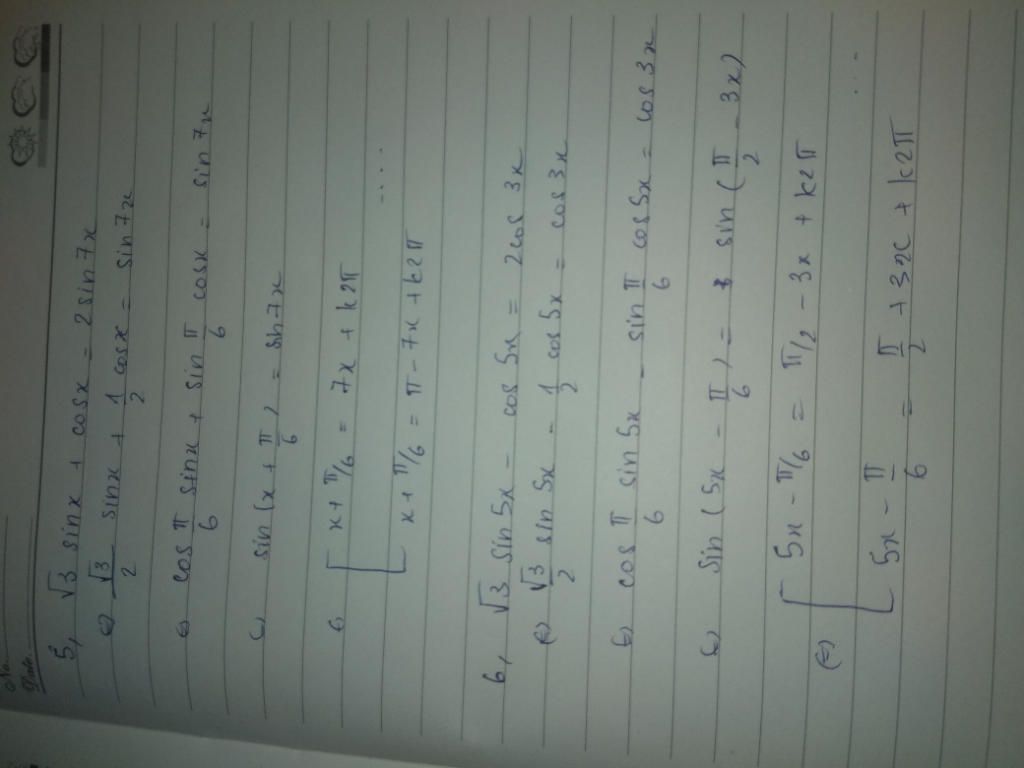 No.
Date.
5, √3 sinx + cosx = 2 sin 7x
(=) √3/2 sinx + 1/2 cosx = sin 7x
(=) cos π/6 sinx + sin π/6 cosx = sin 7x
(=) sin (x + π/6) = sin 7x
(=) [ x + π/6 = 7x + k2π
....
x + π/6 = π - 7x + k2π
6, √3 sin 5x - cos 5x = 2cos 3x
(=) √3/2 sin 5x - 1/2 cos 5x = cos 3x
(=) cos π/6 sin 5x - sin π/6 cos5x = cos 3x
(=) sin (5x - π/6) = sin (π/2 - 3x)
(=) [ 5x - π/6 = π/2 - 3x + k2π
...
5x - π/6 = π/2 + 3x + k2π